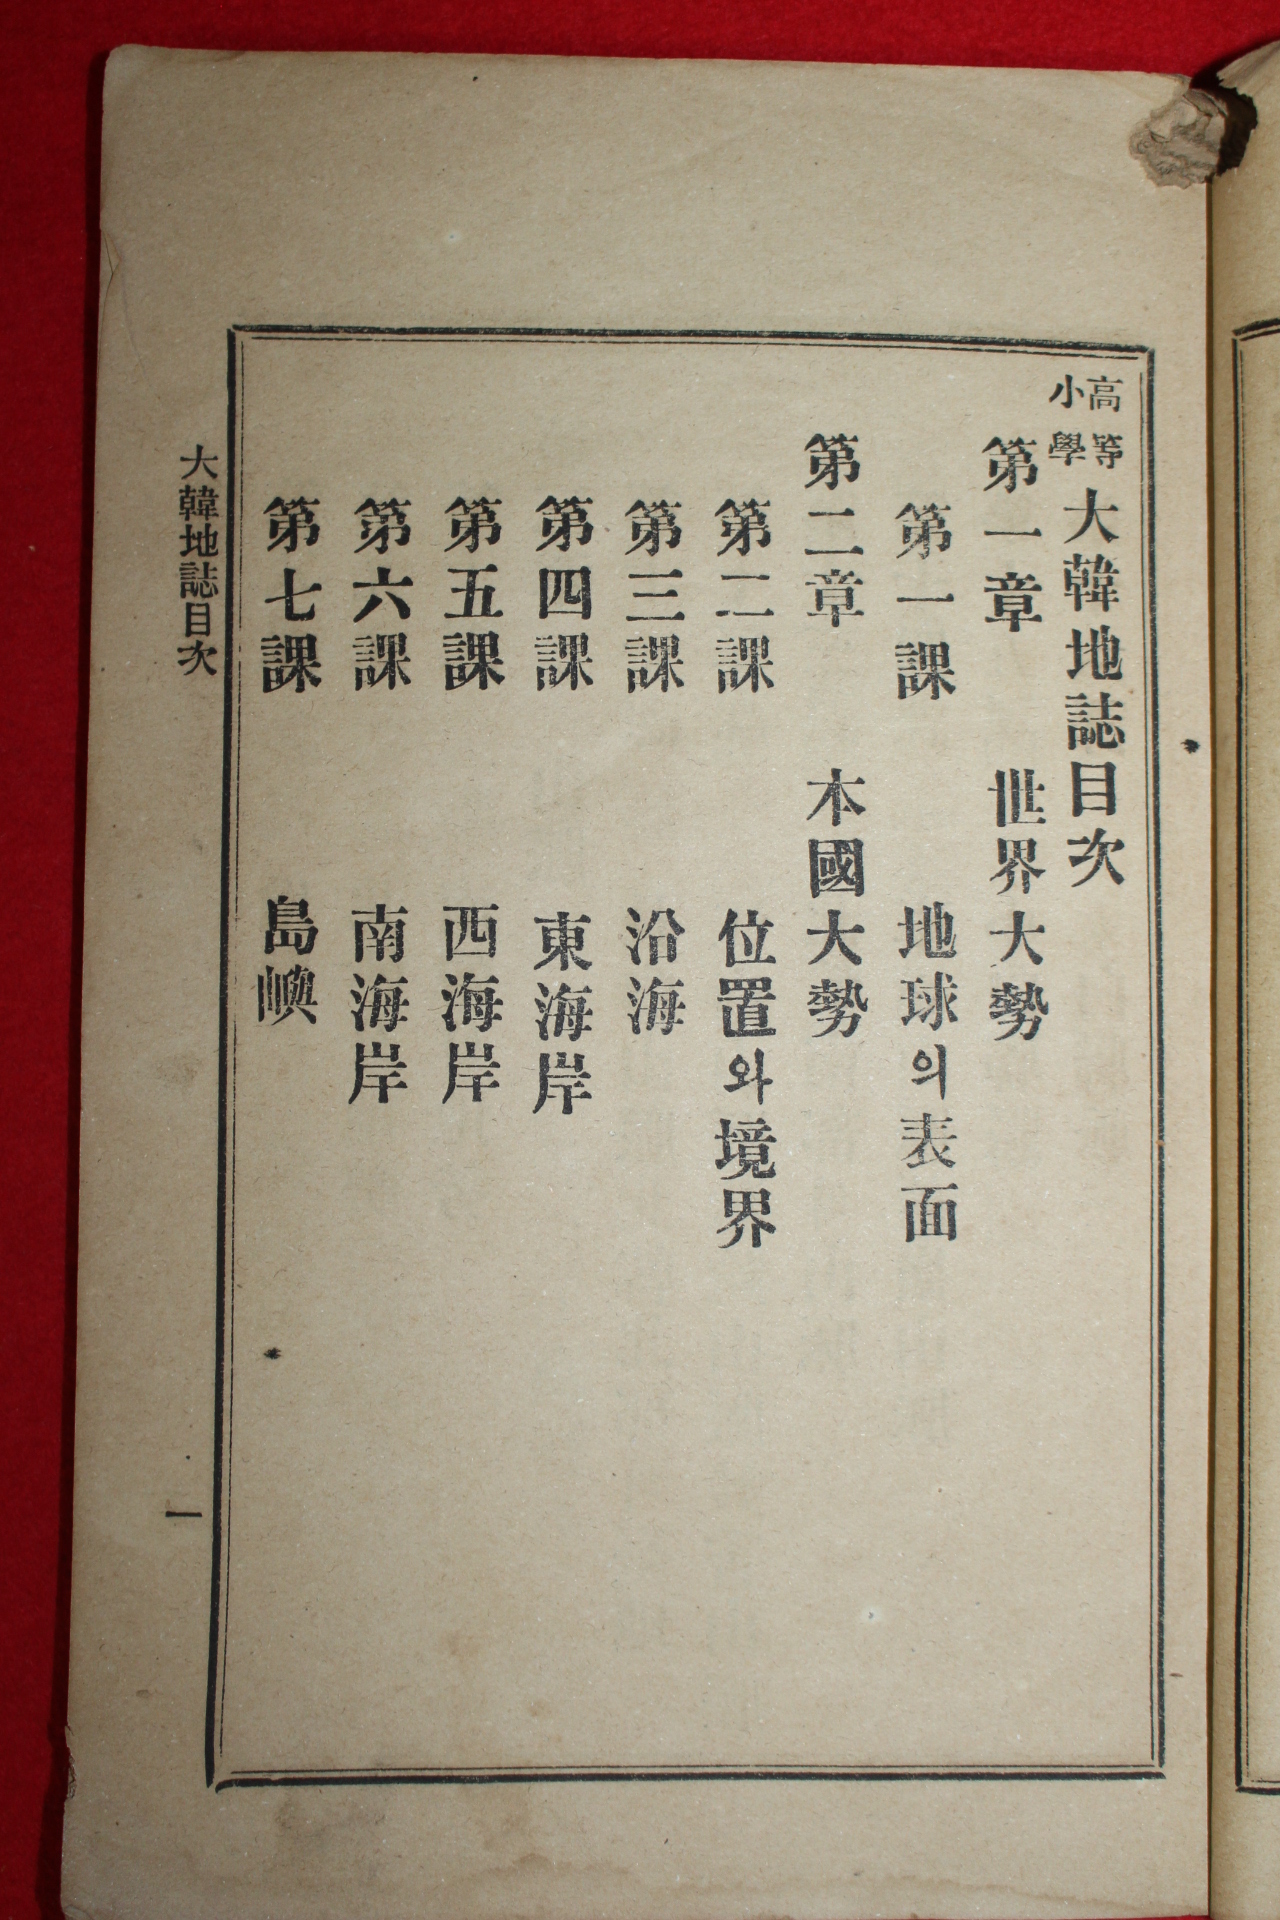 高等小學 大韓地誌目次
第一章 世界大勢
第一課 地球의表面
第二章 本國大勢
第二課 位置와境界
第三課 沿海
第四課 東海岸
第五課 西海岸
第六課 南海岸
第七課 島嶼
大韓地誌目次 一